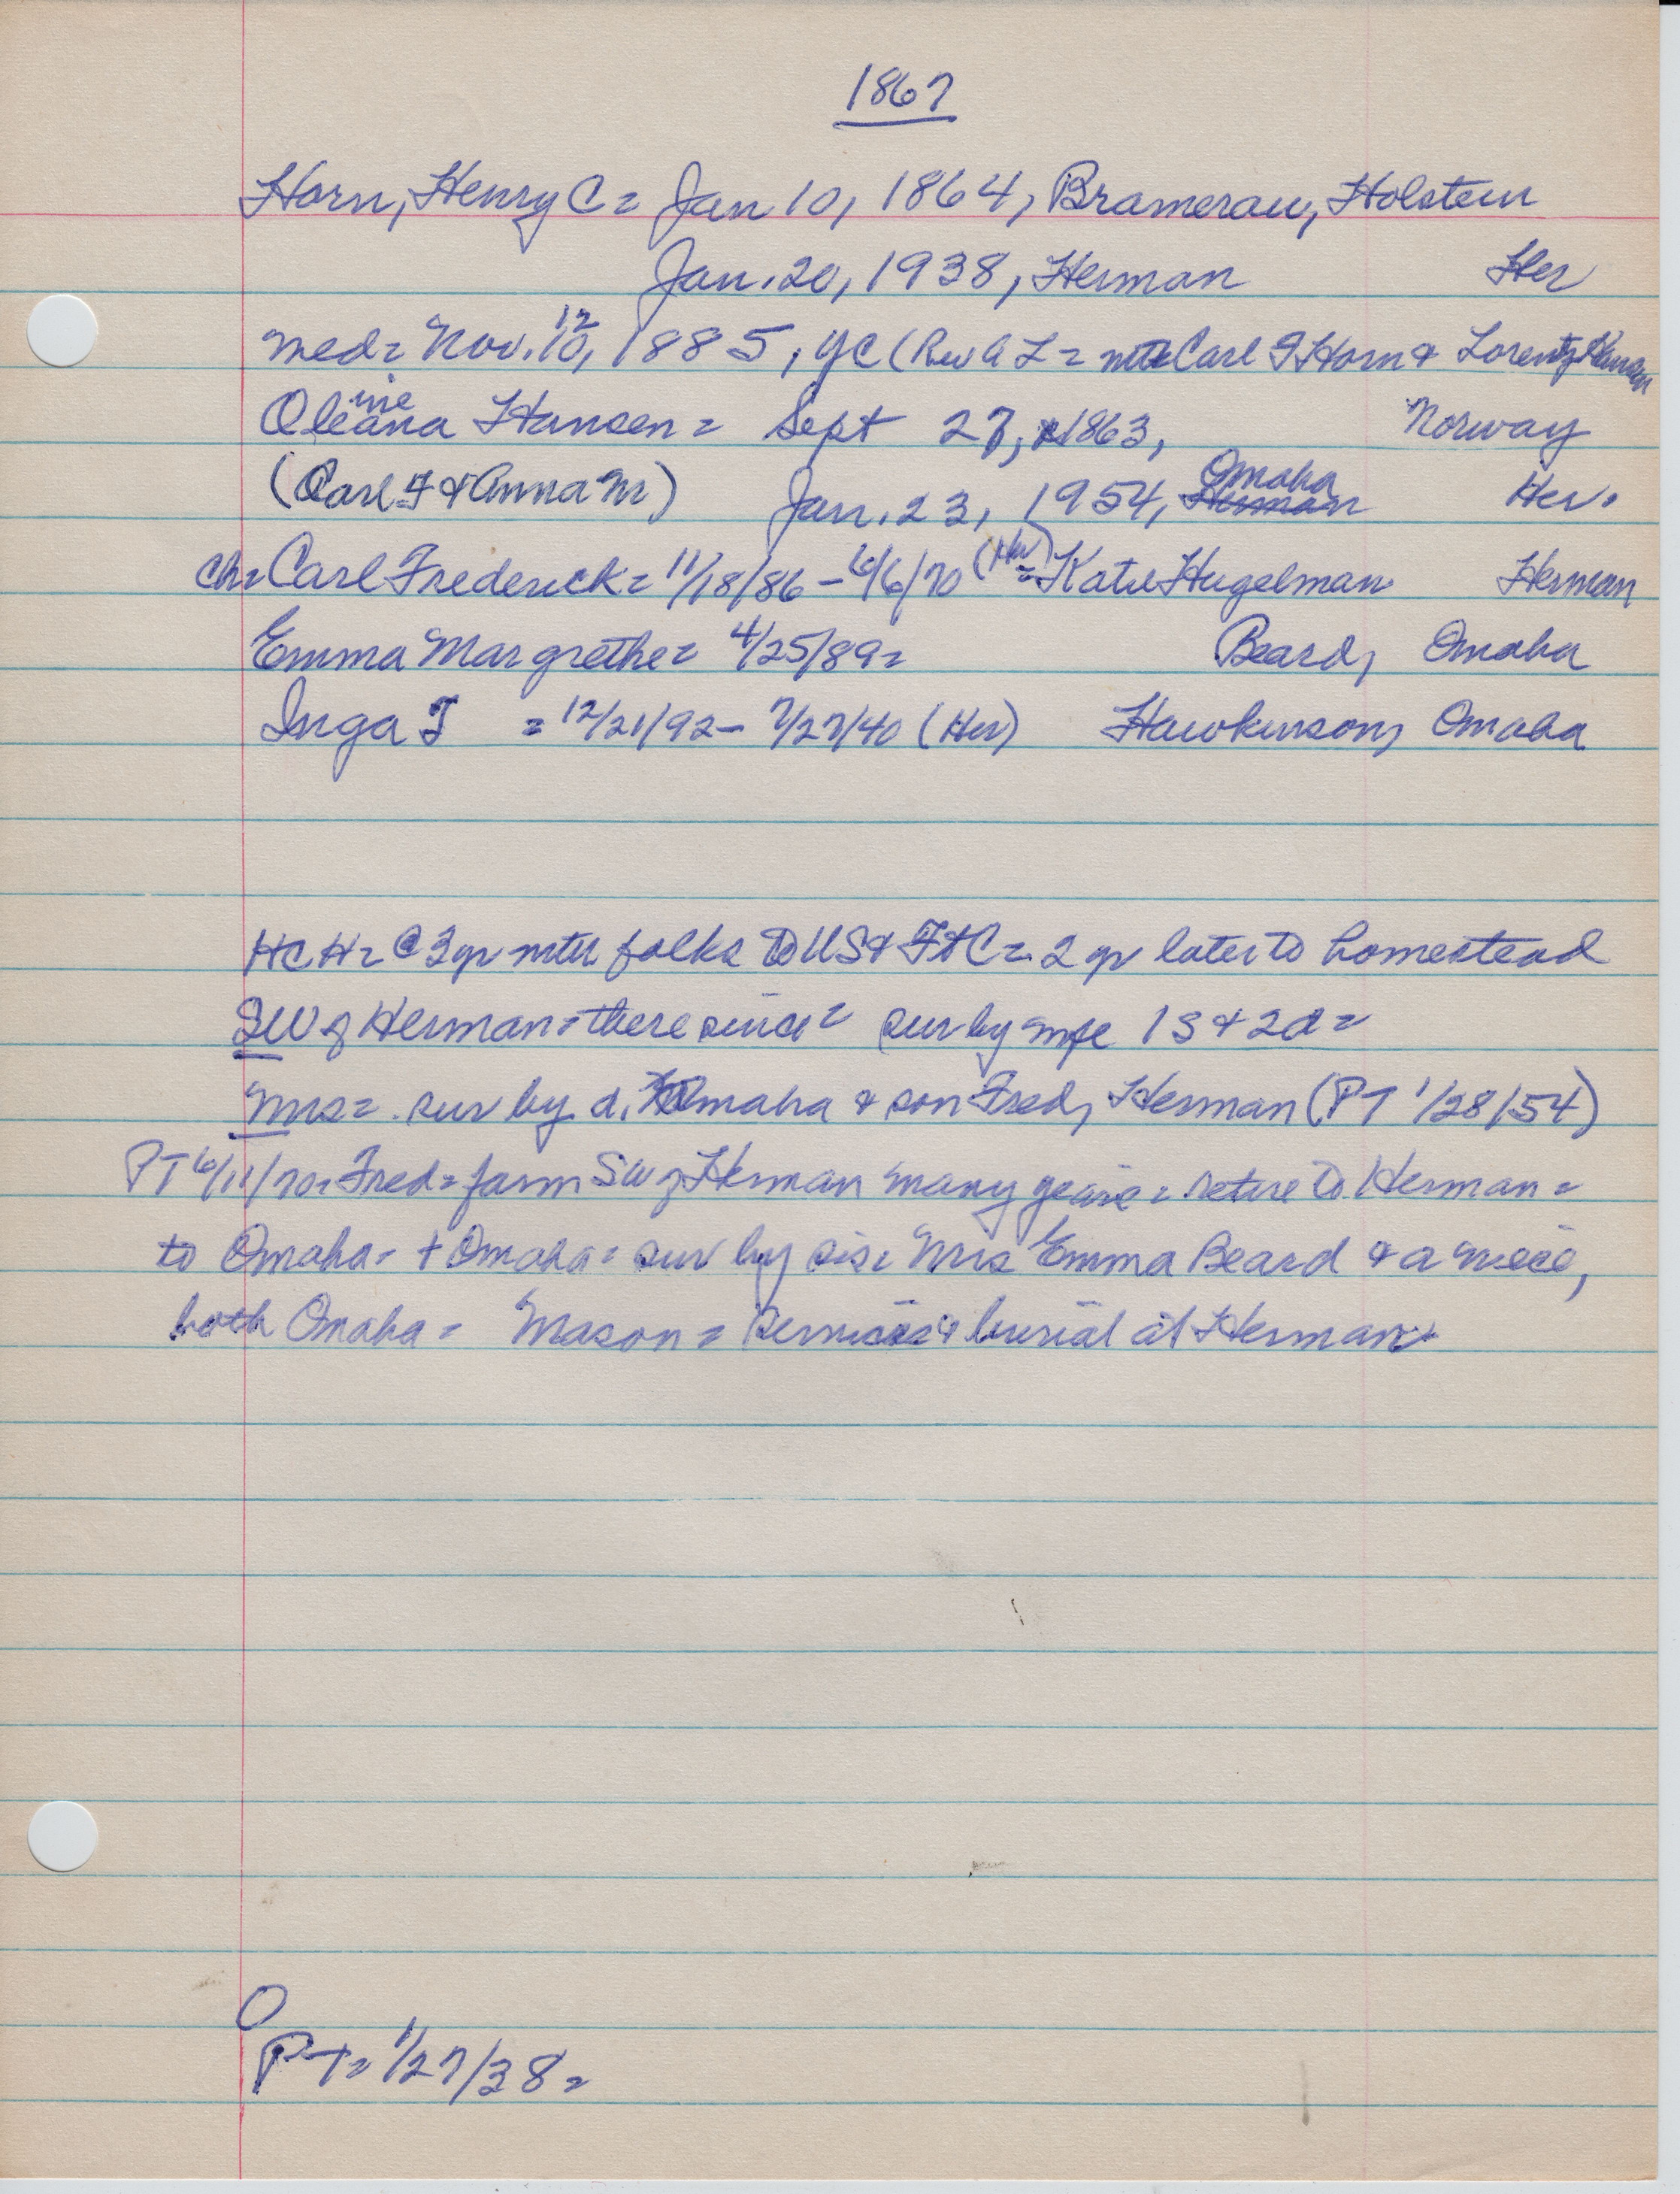 1867
Horn, Henry C = Jan 10, 1864, Bramerau, Holstein
Jan. 20, 1938, Herman Her
med = Nov. 10, 12 1885, YC (Rev A L = Carl F Horn & Lorentz Hansen
Oleana ine Hansen = Sept 27, 1863, Norway
(Carl F & Anna M) Jan. 23, 1954, Herman Omaha Her.
ch = Carl Frederick = 11/18/86 - 6/6/70 (Her) = Katie Hugelman Herman
Emma Margrethe = 4/25/89 = Beard, Omaha
Inga T = 12/21/92 - 7/27/40 (Her) Hawkinson, Omaha
HCH = @ 3 yr folks to US & Ft C = 2 yr later to homestead
SW of Herman = there since = sur by 1 S & 2 d =
Mrs = sur by d. Omaha & son Fred, Herman (PT 1/28/54)
PT 6/11/70 = Fred = farm SW of Herman many years = retire to Herman =
to Omaha = + Omaha = sur by sis = Mrs Emma Beard & a niece,
both Omaha = Mason = services & burial at Herman
O
PT = 1/27/38 =